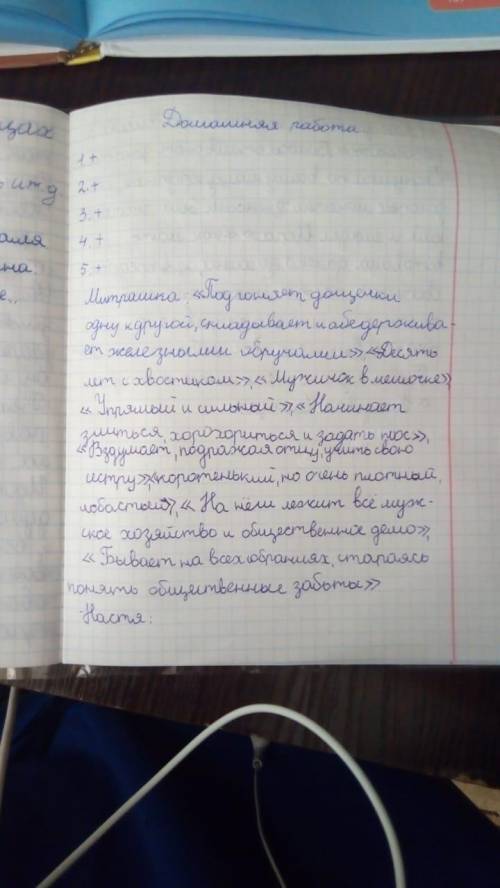 Домашняя работа
1.+
2.+
3.+
4.+
5.+
Митрашка: «Подгоняет дощечки
одну к другой, складывает и обедержива-
ет железными обручами», «Десять
лет с хвостиком», «Мужичок в мешочке»
«Упрямый и сильный», «Начинает
злиться, хорохориться и задать нос»,
«Вздумает, подражая отцу, учить свою
истру» «коротенький, но очень плотный,
лобастый», «На нём лежит всё муж-
ское хозяйство и общественное дело»,
«Бывает на всех обраниях, стараясь
понять общественные заботы»
Настя:
цах
и т.д.